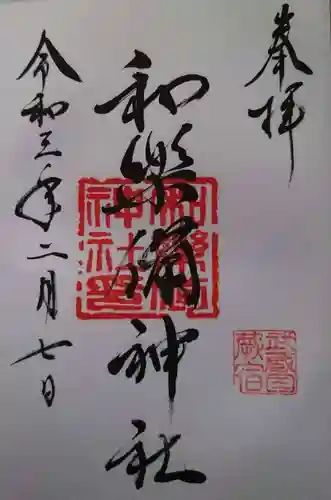 奉拝
和樂備神社
令和三年二月七日
和樂備神社印
武蔵国蕨宿